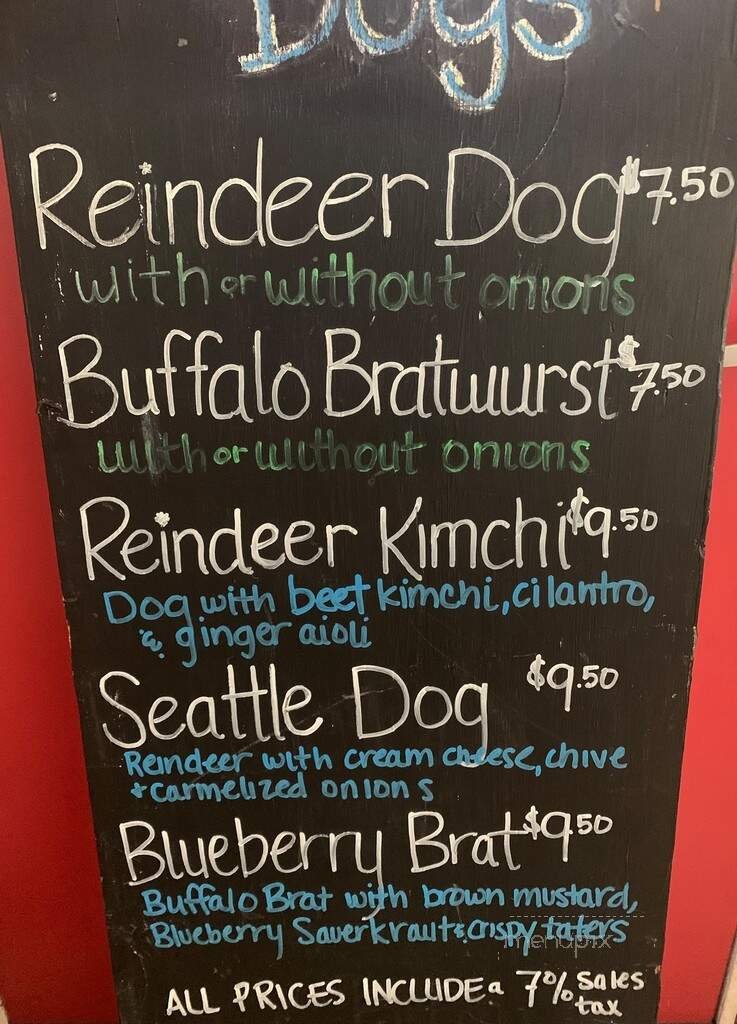 Dogs
Reindeer Dog $7.50
with or without onions
Buffalo Bratwurst $7.50
with or without onions
Reindeer Kimchi $9.50
Dog with beet kimchi, cilantro,
& ginger aioli
Seattle Dog $9.50
Reindeer with cream cheese, chive
+ carmelized onions
Blueberry Brat $9.50
Buffalo Brat with brown mustard,
Blueberry Sauerkraut & crispy taters
menupix
ALL PRICES INCLUDE a 7% sales
tax